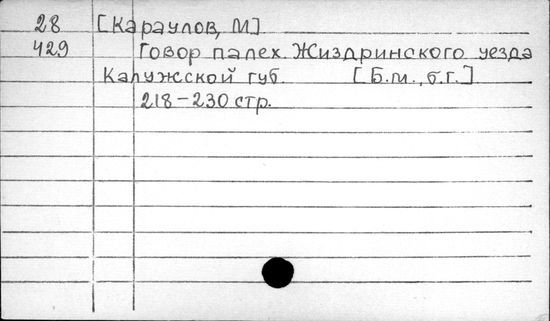 28 [Караулов, М]
429 Говор палех. Жиздринского уезда
Калужской губ. [Б.м., б.г.]
218-230 стр.